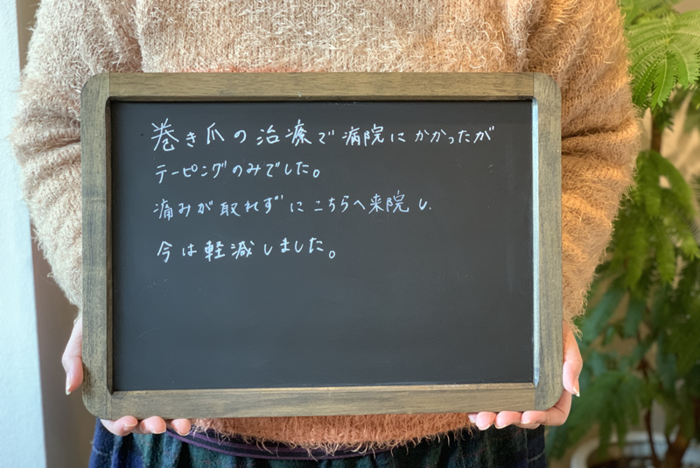 巻き爪の治療で病院にかかったが
テーピングのみでした。
痛みが取れずにこちらへ来院し、
今は軽減しました。